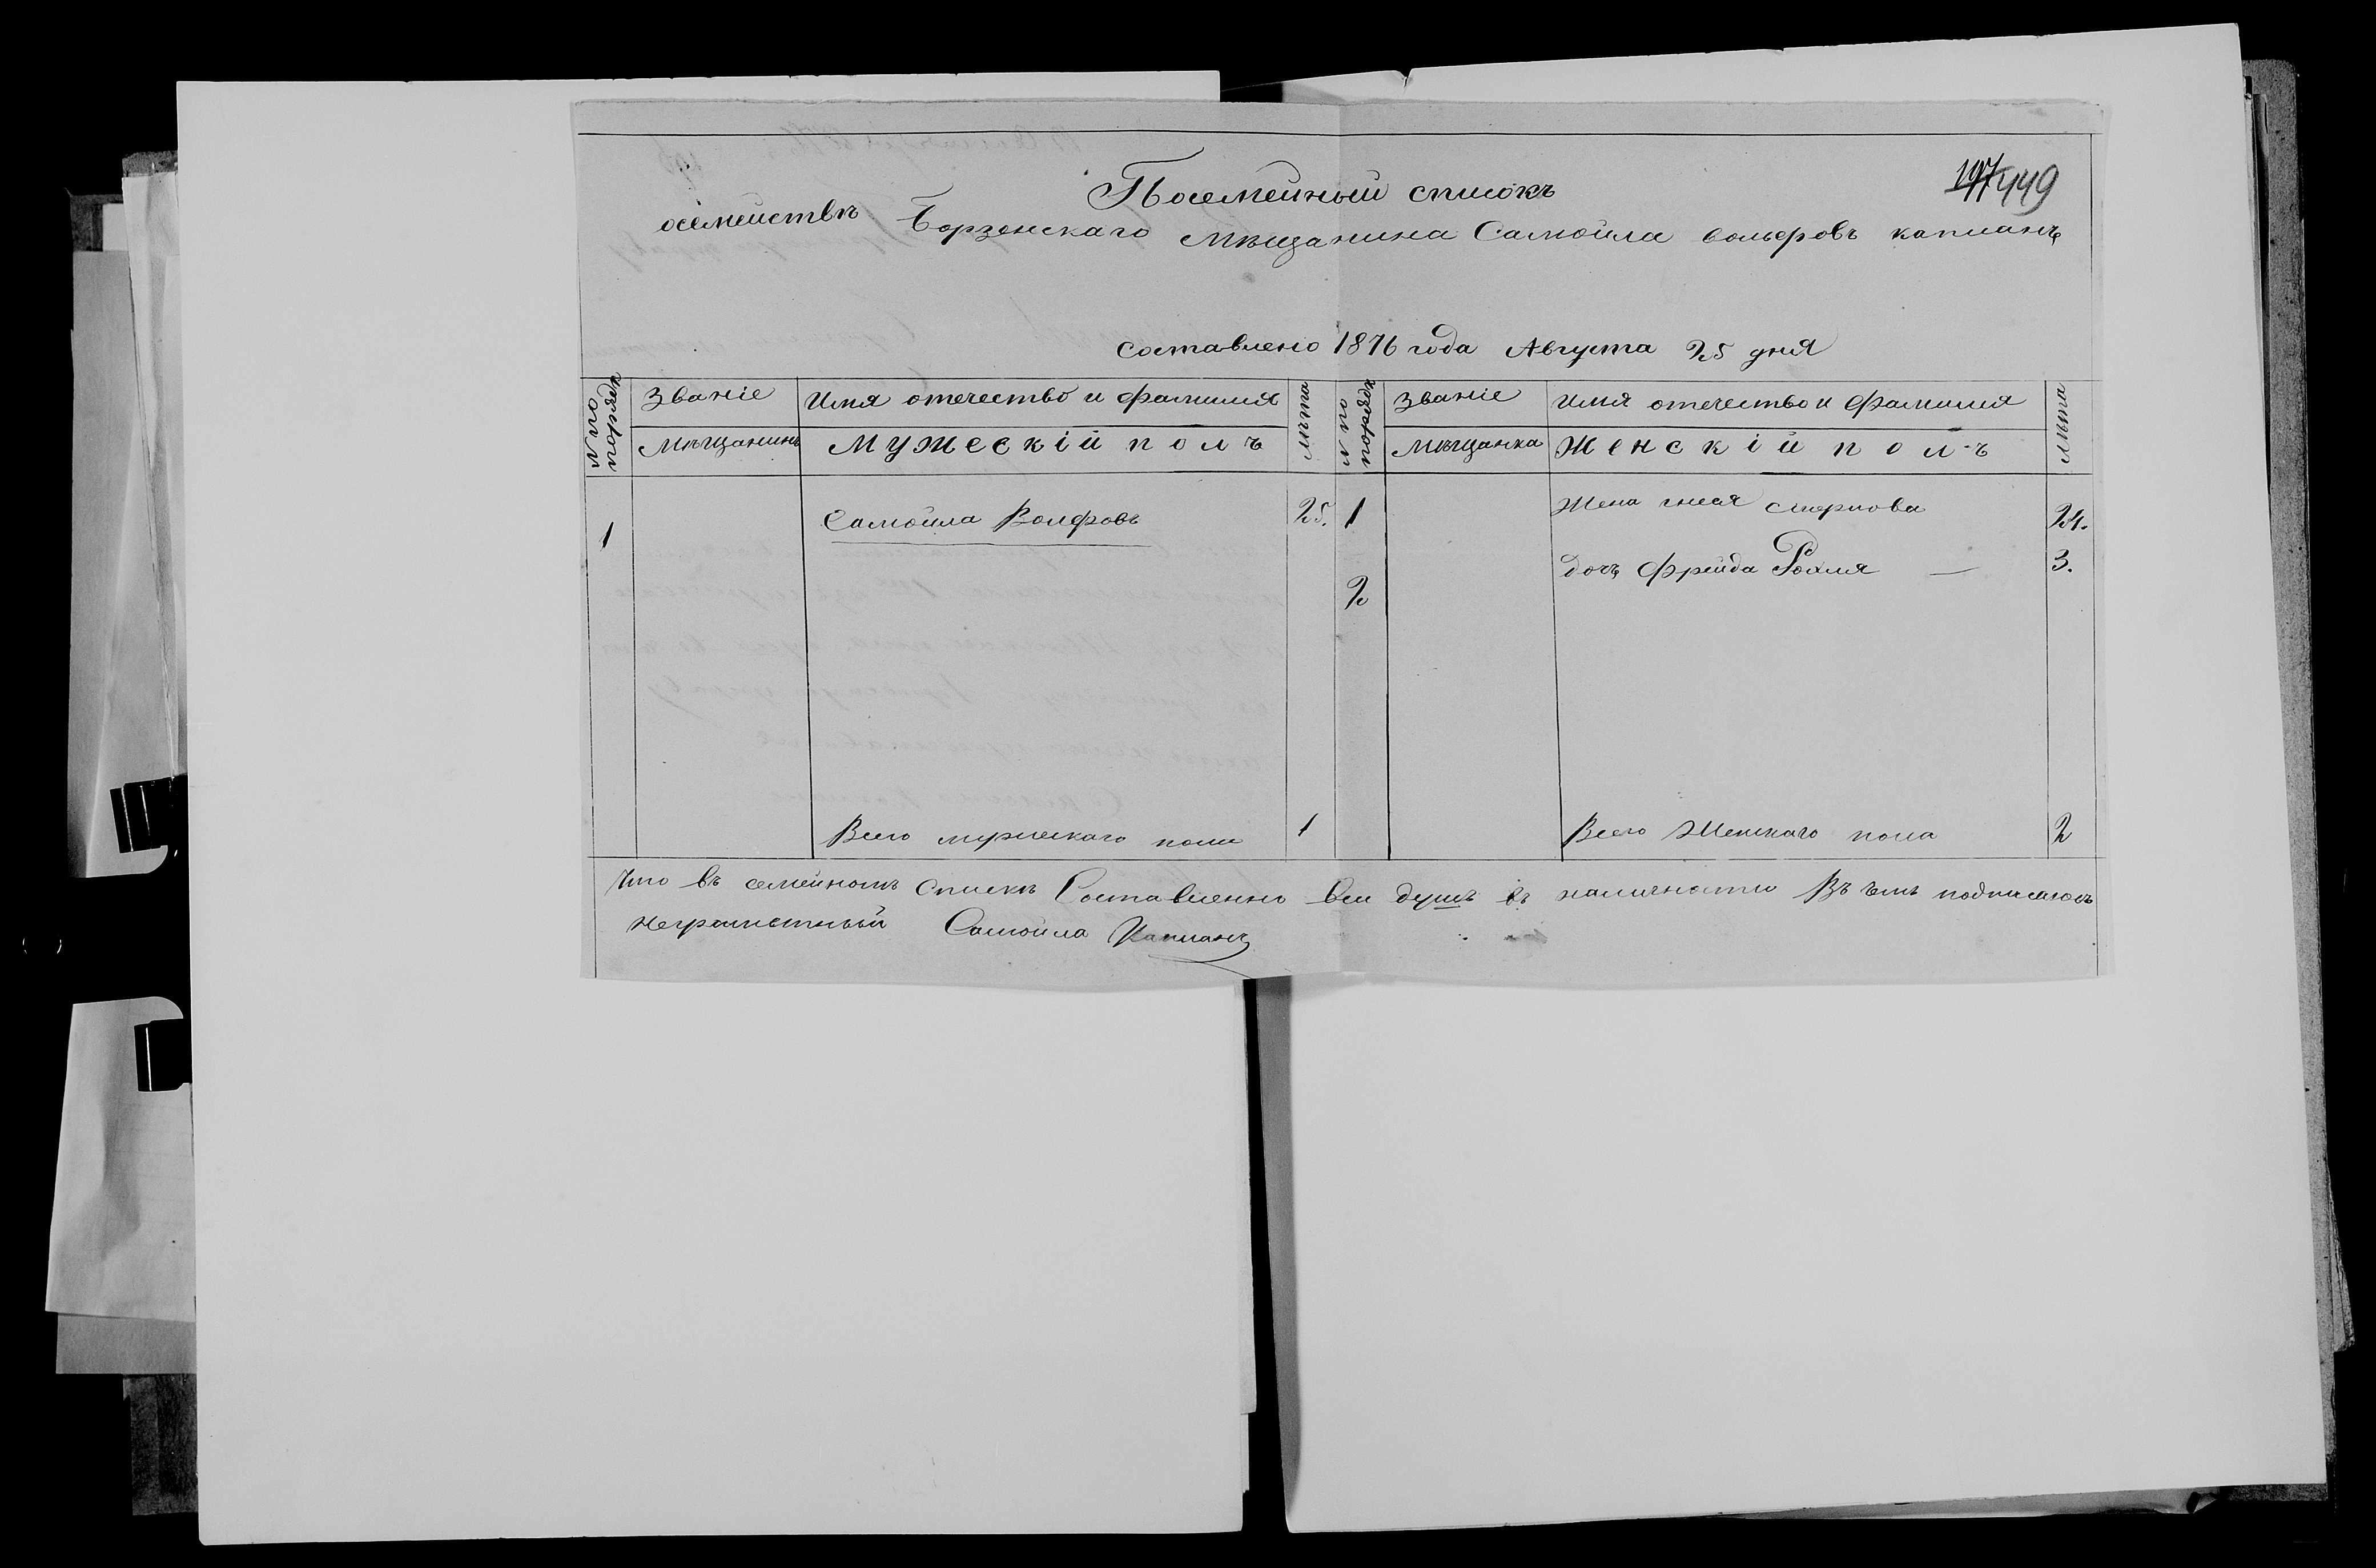 197 449
Посемейный списокъ
осемействѣ Борзенскаго Мѣщанина Самойла вольфовъ капланъ
составлено 1876 года Августа 25 дня
№ по порядк Званіе Имя отечество и фамилія лѣта № по порядк Званіе Имя отечество и фамилія лѣта
Мѣщанинъ Мужескій полъ Мѣщанка Женскій полъ
1 Самойла Волфовъ 25. 1 Жена смерпова 24.
2 дочъ Фрейда Рохля — 3.
Всего мужескаго пола 1 Всего Женскаго пола 2
Что въ семейномъ Спискѣ Составленно все душъ въ наличности Въ томъ подписаюсь
неграмотный Самойла Капланъ